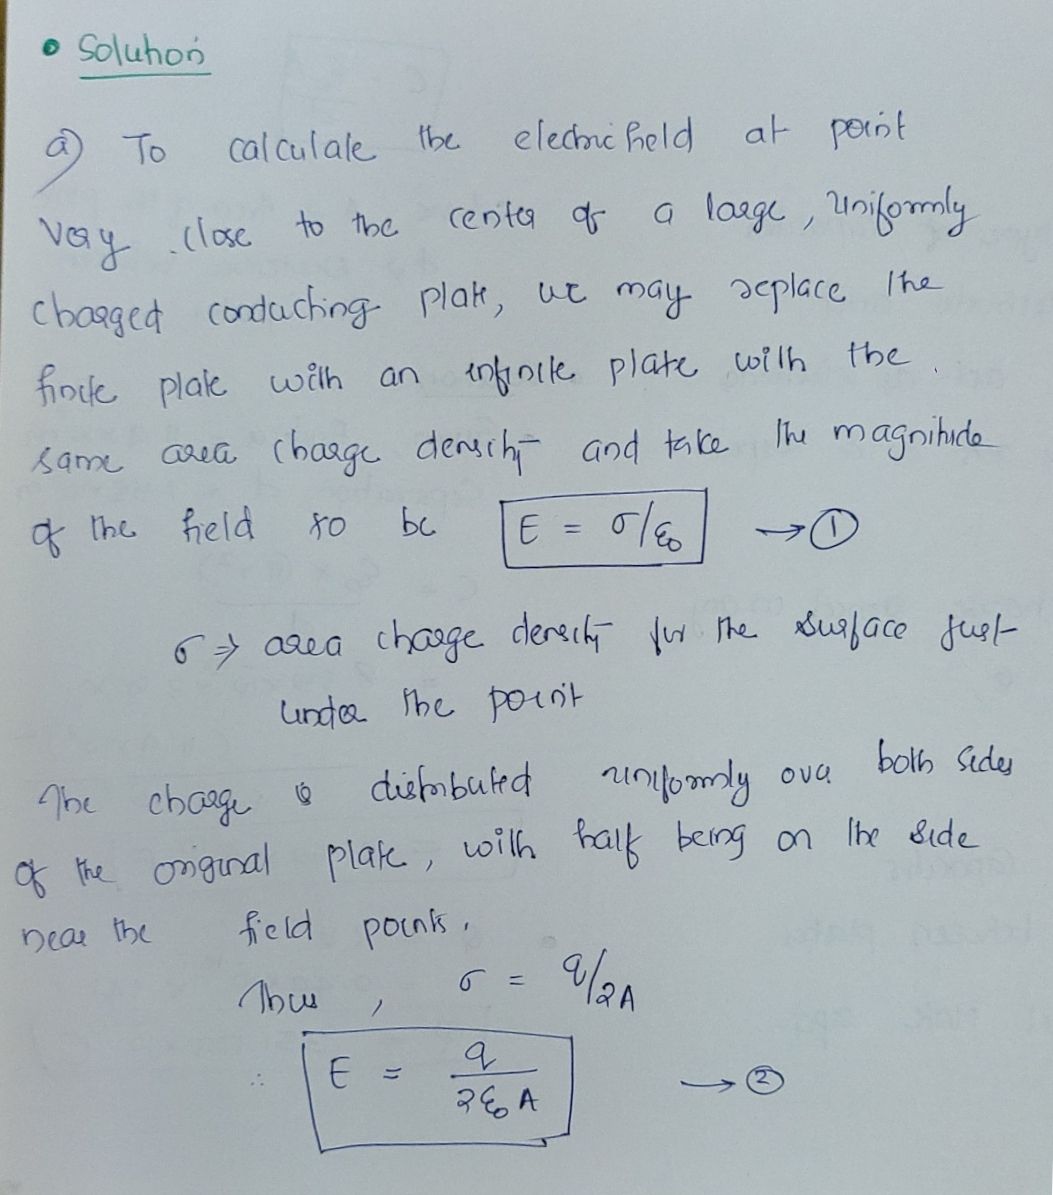 • Solution
a) To calculate the electric field at point
very close to the center of a large, uniformly
charged conducting plate, we may replace the
finite plate with an infinite plate with the
same area charge density and take the magnitude
of the field to be E = σ/ε₀ → ①
σ ⇒ area charge density for the surface just
under the point
The charge is distributed uniformly over both sides
of the original plate, with half being on the side
near the field points.
Thus, σ = q/2A
∴ E = q/2ε₀A → ②